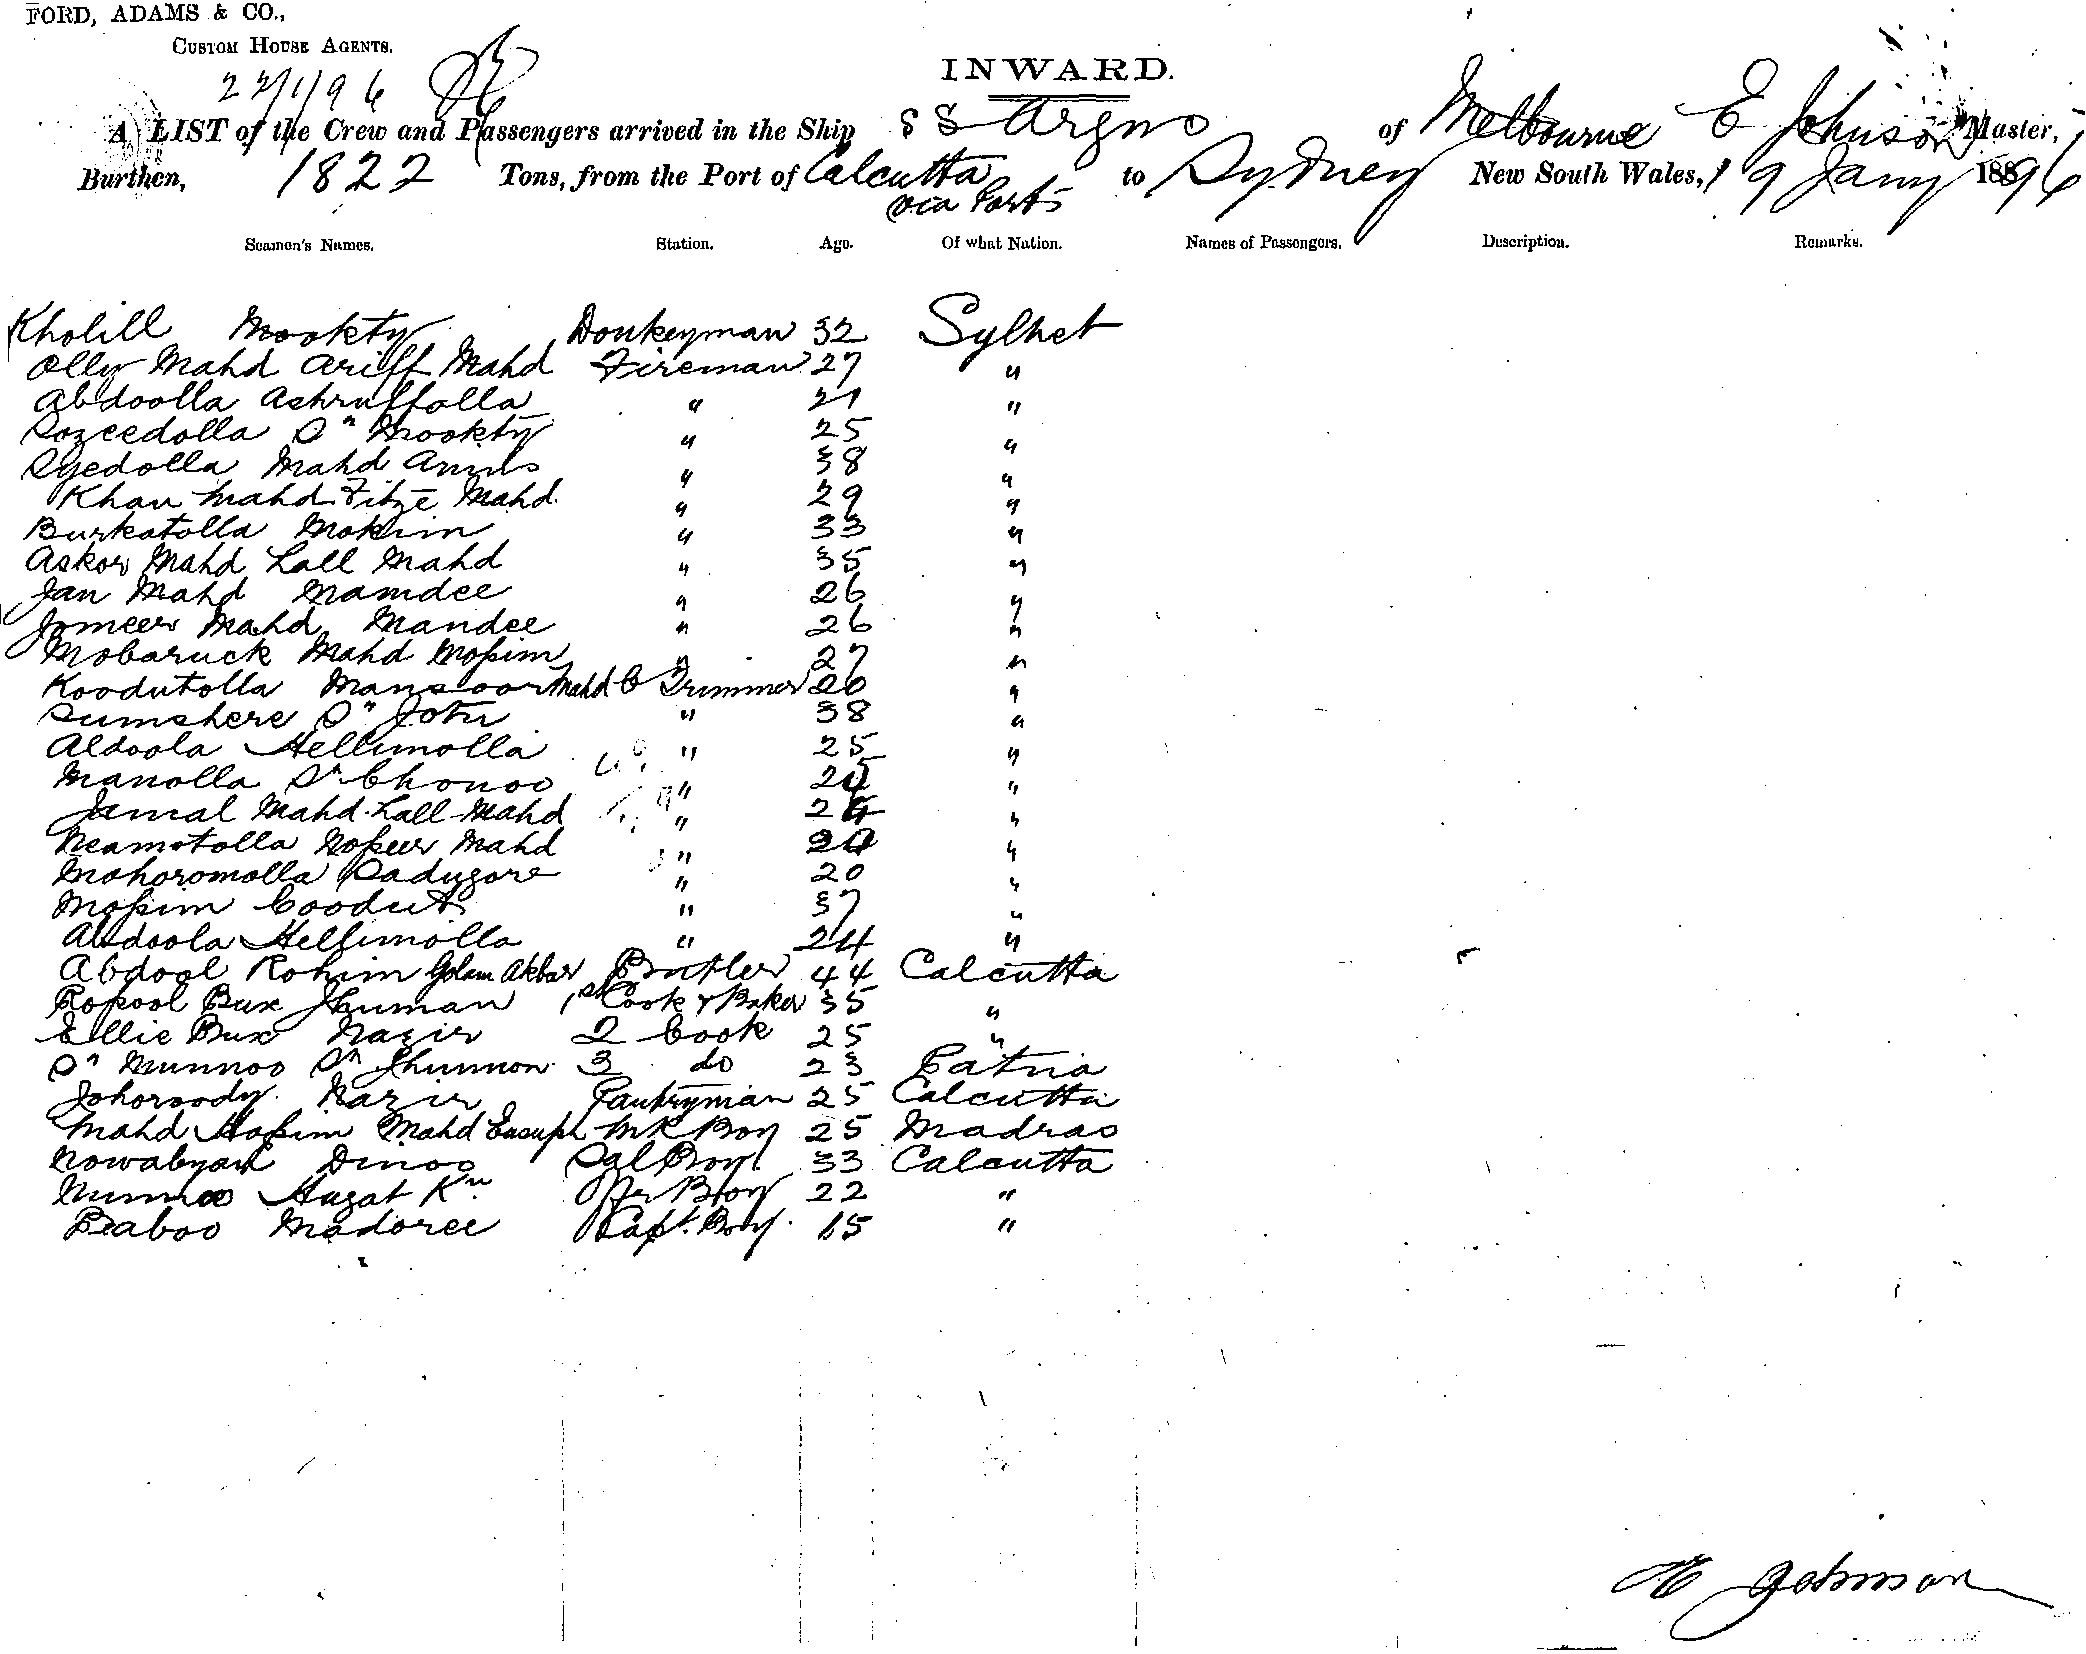 FORD, ADAMS & CO.,
CUSTOM HOUSE AGENTS.
22/1/96
INWARD.
A LIST of the Crew and Passengers arrived in the Ship S S Argus of Melbourne E Johnson Master,
Burthen, 1822 Tons, from the Port of Calcutta to Sydney New South Wales, 19 Jany 1896
via Ports
Seamen's Names. Station. Age. Of what Nation. Names of Passengers. Description. Remarks.
Kholill Mookty Donkeyman 32 Sylhet
Olly Mahd Ariff Mahd Fireman 27 "
Abdoolla Ashruffolla " 21 "
Sozeedolla Sn Mookty " 25 "
Syedolla Mahd Anins " 38 "
Khan Mahd Fitze Mahd " 29 "
Burkatolla Mokim " 33 "
Askor Mahd Lall Mahd " 35 "
Jan Mahd Mamdee " 26 "
Jomeer Mahd Mandee " 26 "
Mobaruck Mahd Mosim " 27 "
Koodutolla Mansoor Mahd C Trimmer 26 "
Sumshere Sn Jotu " 38 "
Aldoola Hellimolla " 25 "
Manolla Sn Chonoo " "
Jamal Mahd Lall Mahd " 24 "
Neamotolla Noseer Mahd " "
Mohoromolla Sadugore " 20 "
Mosim Coodut " 37 "
Abdoola Hellimolla " 24 "
Abdool Rohim Golam Akbar Butler 44 Calcutta
Rosool Bux Jhuman 1st Cook & Baker 35 "
Ellie Bux Nazir 2 Cook 25 "
Sn Munnoo Sn Jhunnon 3 do 23 Patna
Johoroody Nazir Pantryman 25 Calcutta
Mahd Hosim Mahd Eusuph MR Boy 25 Madras
Nowabyan Dinoo Sal Boy 33 Calcutta
Nunnoo Huzat Kn Offr Boy 22 "
Baboo Madoree Capt. Boy. 15 "
E Johnson